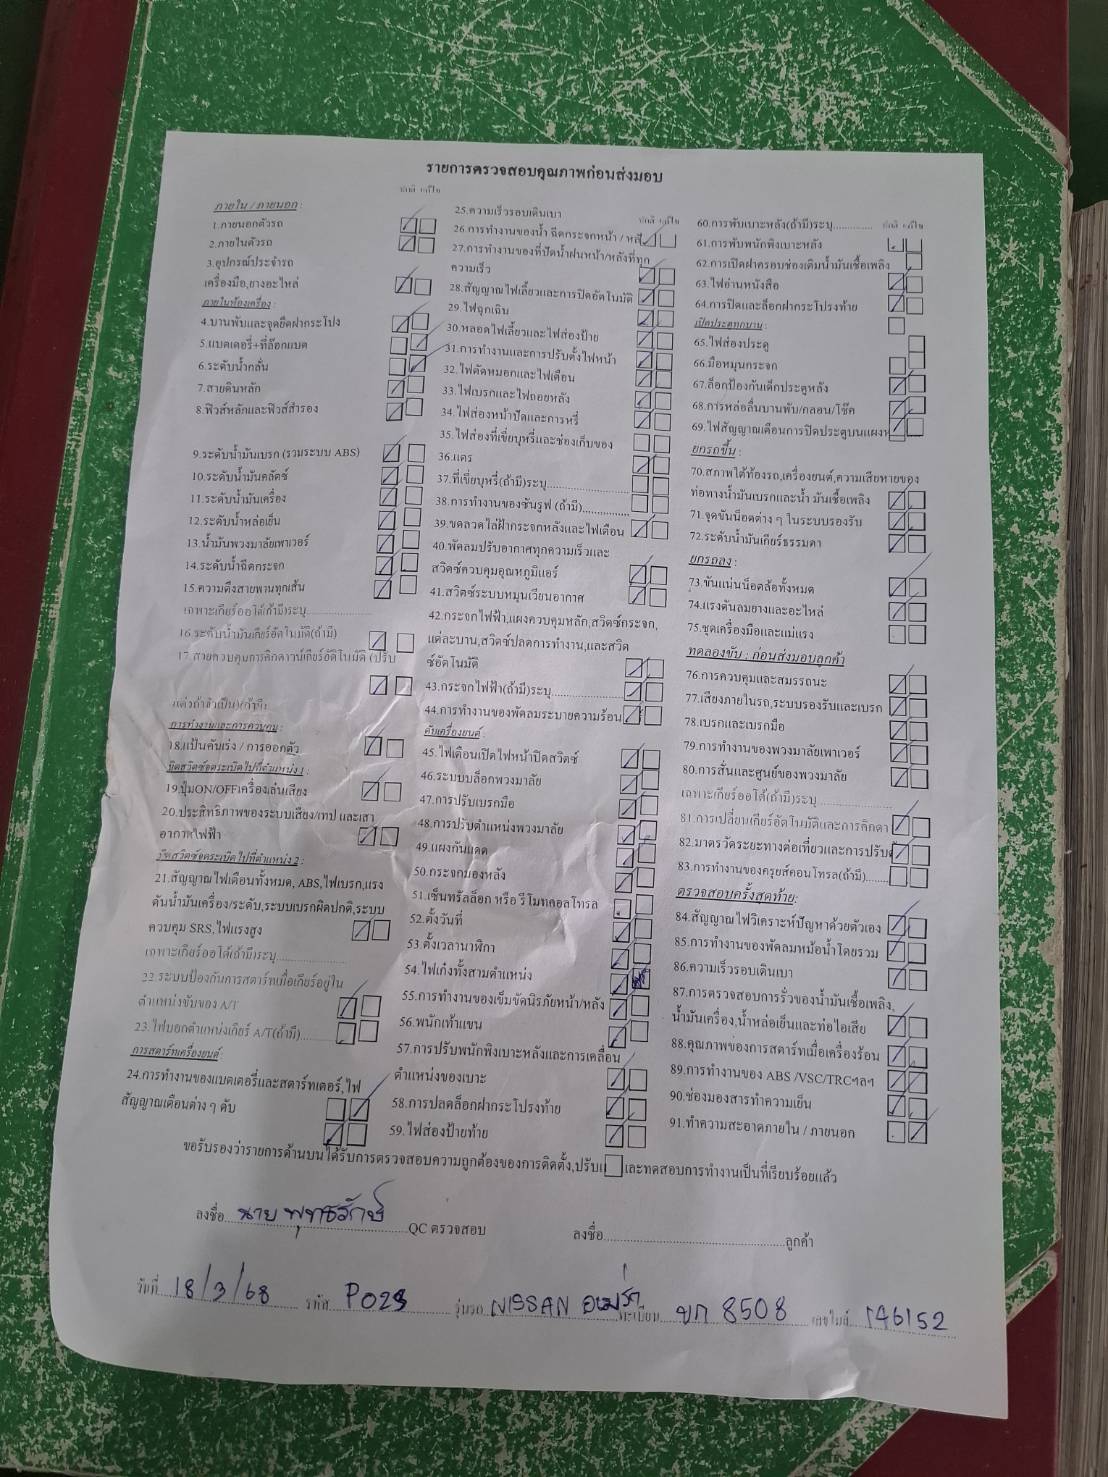 รายการตรวจสอบคุณภาพก่อนส่งมอบ
ปกติ แก้ไข
ภายใน / ภายนอก :
1.ภายนอกตัวรถ
2.ภายในตัวรถ
3.อุปกรณ์ประจำรถ
เครื่องมือ,ยางอะไหล่
ภายในห้องเครื่อง :
4.บานพับและจุดยึดฝากระโปง
5.แบตเตอรี่+ที่ล๊อกแบต
6.ระดับน้ำกลั่น
7.สายดินหลัก
8.ฟิวส์หลักและฟิวส์สำรอง
9.ระดับน้ำมันเบรก (รวมระบบ ABS)
10.ระดับน้ำมันคลัตช์
11.ระดับน้ำมันเครื่อง
12.ระดับน้ำหล่อเย็น
13.น้ำมันพวงมาลัยเพาเวอร์
14.ระดับน้ำฉีดกระจก
15.ความตึงสายพานทุกเส้น
เฉพาะเกียร์ออโต้(ถ้ามี)ระบุ
16.ระดับน้ำมันเกียร์อัตโนมัติ(ถ้ามี)
17.สายควบคุมการคิกดาวน์เกียร์อัติโนมัติ (ปรับ
แต่งถ้าจำเป็น)(ถ้ามี)
การทำงานและการควบคุม :
18.แป้นคันเร่ง / การออกตัว
บิดสวิตช์จุดระเบิดไปที่ตำแหน่ง 1 :
19.ปุ่มON/OFFเครื่องเล่นเสียง
20.ประสิทธิภาพของระบบเสียง/เทป และเสา
อากาศไฟฟ้า
บิดสวิตช์จุดระเบิดไปที่ตำแหน่ง 2 :
21.สัญญาณไฟเตือนทั้งหมด, ABS,ไฟเบรก,แรง
ดันน้ำมันเครื่อง/ระดับ,ระบบเบรกผิดปกติ,ระบบ
ควบคุม SRS,ไฟแรงสูง
เฉพาะเกียร์ออโต้(ถ้ามี)ระบุ
22.ระบบป้องกันการสตาร์ทเมื่อเกียร์อยู่ใน
ตำแหน่งขับของ A/T
23.ไฟบอกตำแหน่งเกียร์ A/T(ถ้ามี)
การสตาร์ทเครื่องยนต์ :
24.การทำงานของแบตเตอรี่และสตาร์ทเตอร์,ไฟ
สัญญาณเตือนต่าง ๆ ดับ
ปกติ แก้ไข
25.ความเร็วรอบเดินเบา
26.การทำงานของน้ำ ฉีดกระจกหน้า / หลัง
27.การทำงานของที่ปัดน้ำฝนหน้า/หลังที่ทุก
ความเร็ว
28.สัญญาณไฟเลี้ยวและการปิดอัตโนมัติ
29.ไฟฉุกเฉิน
30.หลอดไฟเลี้ยวและไฟส่องป้าย
31.การทำงานและการปรับตั้งไฟหน้า
32.ไฟตัดหมอกและไฟเตือน
33.ไฟเบรกและไฟถอยหลัง
34.ไฟส่องหน้าปัดและการหรี่
35.ไฟส่องที่เขี่ยบุหรี่และช่องเก็บของ
36.แตร
37.ที่เขี่ยบุหรี่(ถ้ามี)ระบุ
38.การทำงานของซันรูฟ (ถ้ามี)
39.ขดลวดไล่ฝ้ากระจกหลังและไฟเตือน
40.พัดลมปรับอากาศทุกความเร็วและ
สวิตช์ควบคุมอุณหภูมิแอร์
41.สวิตช์ระบบหมุนเวียนอากาศ
42.กระจกไฟฟ้า,แผงควบคุมหลัก,สวิตช์กระจก,
แต่ละบาน,สวิตช์ปลดการทำงาน,และสวิต
ช์อัตโนมัติ
43.กระจกไฟฟ้า(ถ้ามี)ระบุ
44.การทำงานของพัดลมระบายความร้อน
ดับเครื่องยนต์ :
45.ไฟเตือนเปิดไฟหน้าปิดสวิตช์
46.ระบบบล็อกพวงมาลัย
47.การปรับเบรกมือ
48.การปรับตำแหน่งพวงมาลัย
49.แผงกันแดด
50.กระจกมองหลัง
51.เซ็นทรัลล็อก หรือ รีโมทคอลโทรล
52.ตั้งวันที่
53.ตั้งเวลานาฬิกา
54.ไฟเก๋งทั้งสามตำแหน่ง
55.การทำงานของเข็มขัดนิรภัยหน้า/หลัง
56.พนักเท้าแขน
57.การปรับพนักพิงเบาะหลังและการเคลื่อน
ตำแหน่งของเบาะ
58.การปลดล็อกฝากระโปรงท้าย
59.ไฟส่องป้ายท้าย
ปกติ แก้ไข
60.การพับเบาะหลัง(ถ้ามี)ระบุ
61.การพับพนักพิงเบาะหลัง
62.การเปิดฝาครอบช่องเติมน้ำมันเชื้อเพลิง
63.ไฟอ่านหนังสือ
64.การปิดและล็อกฝากระโปรงท้าย
เปิดประตูทุกบาน :
65.ไฟส่องประตู
66.มือหมุนกระจก
67.ล็อกป้องกันเด็กประตูหลัง
68.การหล่อลื่นบานพับ/กลอน/โช๊ค
69.ไฟสัญญาณเตือนการปิดประตูบนแผงหน้า
ยกรถขึ้น :
70.สภาพใต้ท้องรถ,เครื่องยนต์,ความเสียหายของ
ท่อทางน้ำมันเบรกและน้ำ มันเชื้อเพลิง
71.จุดขันน็อตต่าง ๆ ในระบบรองรับ
72.ระดับน้ำมันเกียร์ธรรมดา
ยกรถลง :
73.ขันแน่นน็อตล้อทั้งหมด
74.แรงดันลมยางและอะไหล่
75.ชุดเครื่องมือและแม่แรง
ทดลองขับ : ก่อนส่งมอบลูกค้า
76.การควบคุมและสมรรถนะ
77.เสียงภายในรถ,ระบบรองรับและเบรก
78.เบรกและเบรกมือ
79.การทำงานของพวงมาลัยเพาเวอร์
80.การสั่นและศูนย์ของพวงมาลัย
เฉพาะเกียร์ออโต้(ถ้ามี)ระบุ
81.การเปลี่ยนเกียร์อัตโนมัติและการคิกดา
82.มาตรวัดระยะทางต่อเที่ยวและการปรับ
83.การทำงานของครูยส์คอนโทรล(ถ้ามี)
ตรวจสอบครั้งสุดท้าย:
84.สัญญาณไฟวิเคราะห์ปัญหาด้วยตัวเอง
85.การทำงานของพัดลมหม้อน้ำโดยรวม
86.ความเร็วรอบเดินเบา
87.การตรวจสอบการรั่วของน้ำมันเชื้อเพลิง,
น้ำมันเครื่อง,น้ำหล่อเย็นและท่อไอเสีย
88.คุณภาพของการสตาร์ทเมื่อเครื่องร้อน
89.การทำงานของ ABS /VSC/TRCฯลฯ
90.ช่องมองสารทำความเย็น
91.ทำความสะอาดภายใน / ภายนอก
ขอรับรองว่ารายการด้านบนได้รับการตรวจสอบความถูกต้องของการติดตั้ง,ปรับ และทดสอบการทำงานเป็นที่เรียบร้อยแล้ว
ลงชื่อ นาย พุทธรักษ์ QC ตรวจสอบ ลงชื่อ ลูกค้า
วันที่ 18/3/68 รหัส P028 รุ่นรถ NISSAN ทะเบียน ขก 8508 เลขไมล์ 146152